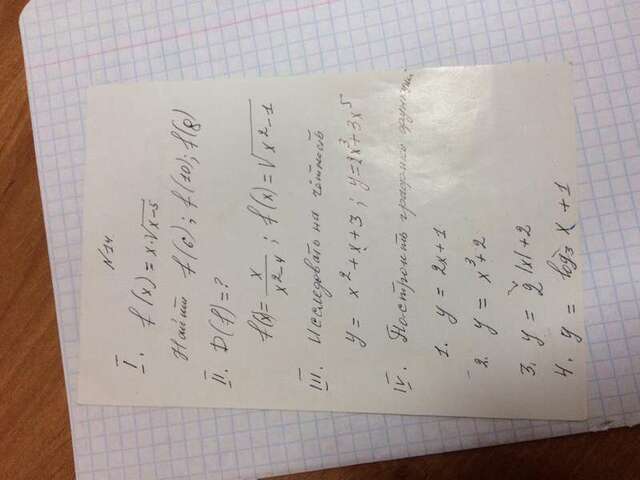 N14.
I. f(x) = x·√x-5
Найти f(6); f(10); f(8)
II. D(f) = ?
f(x) = x/(x²-4); f(x) = √x²-1
III. Исследовать на чётность
y = x²+x+3; y = 2x³+3x⁵
IV. Построить графики функций
1. y = 2x+1
2. y = x³+2
3. y = 2|x|+2
4. y = log₃ x + 1